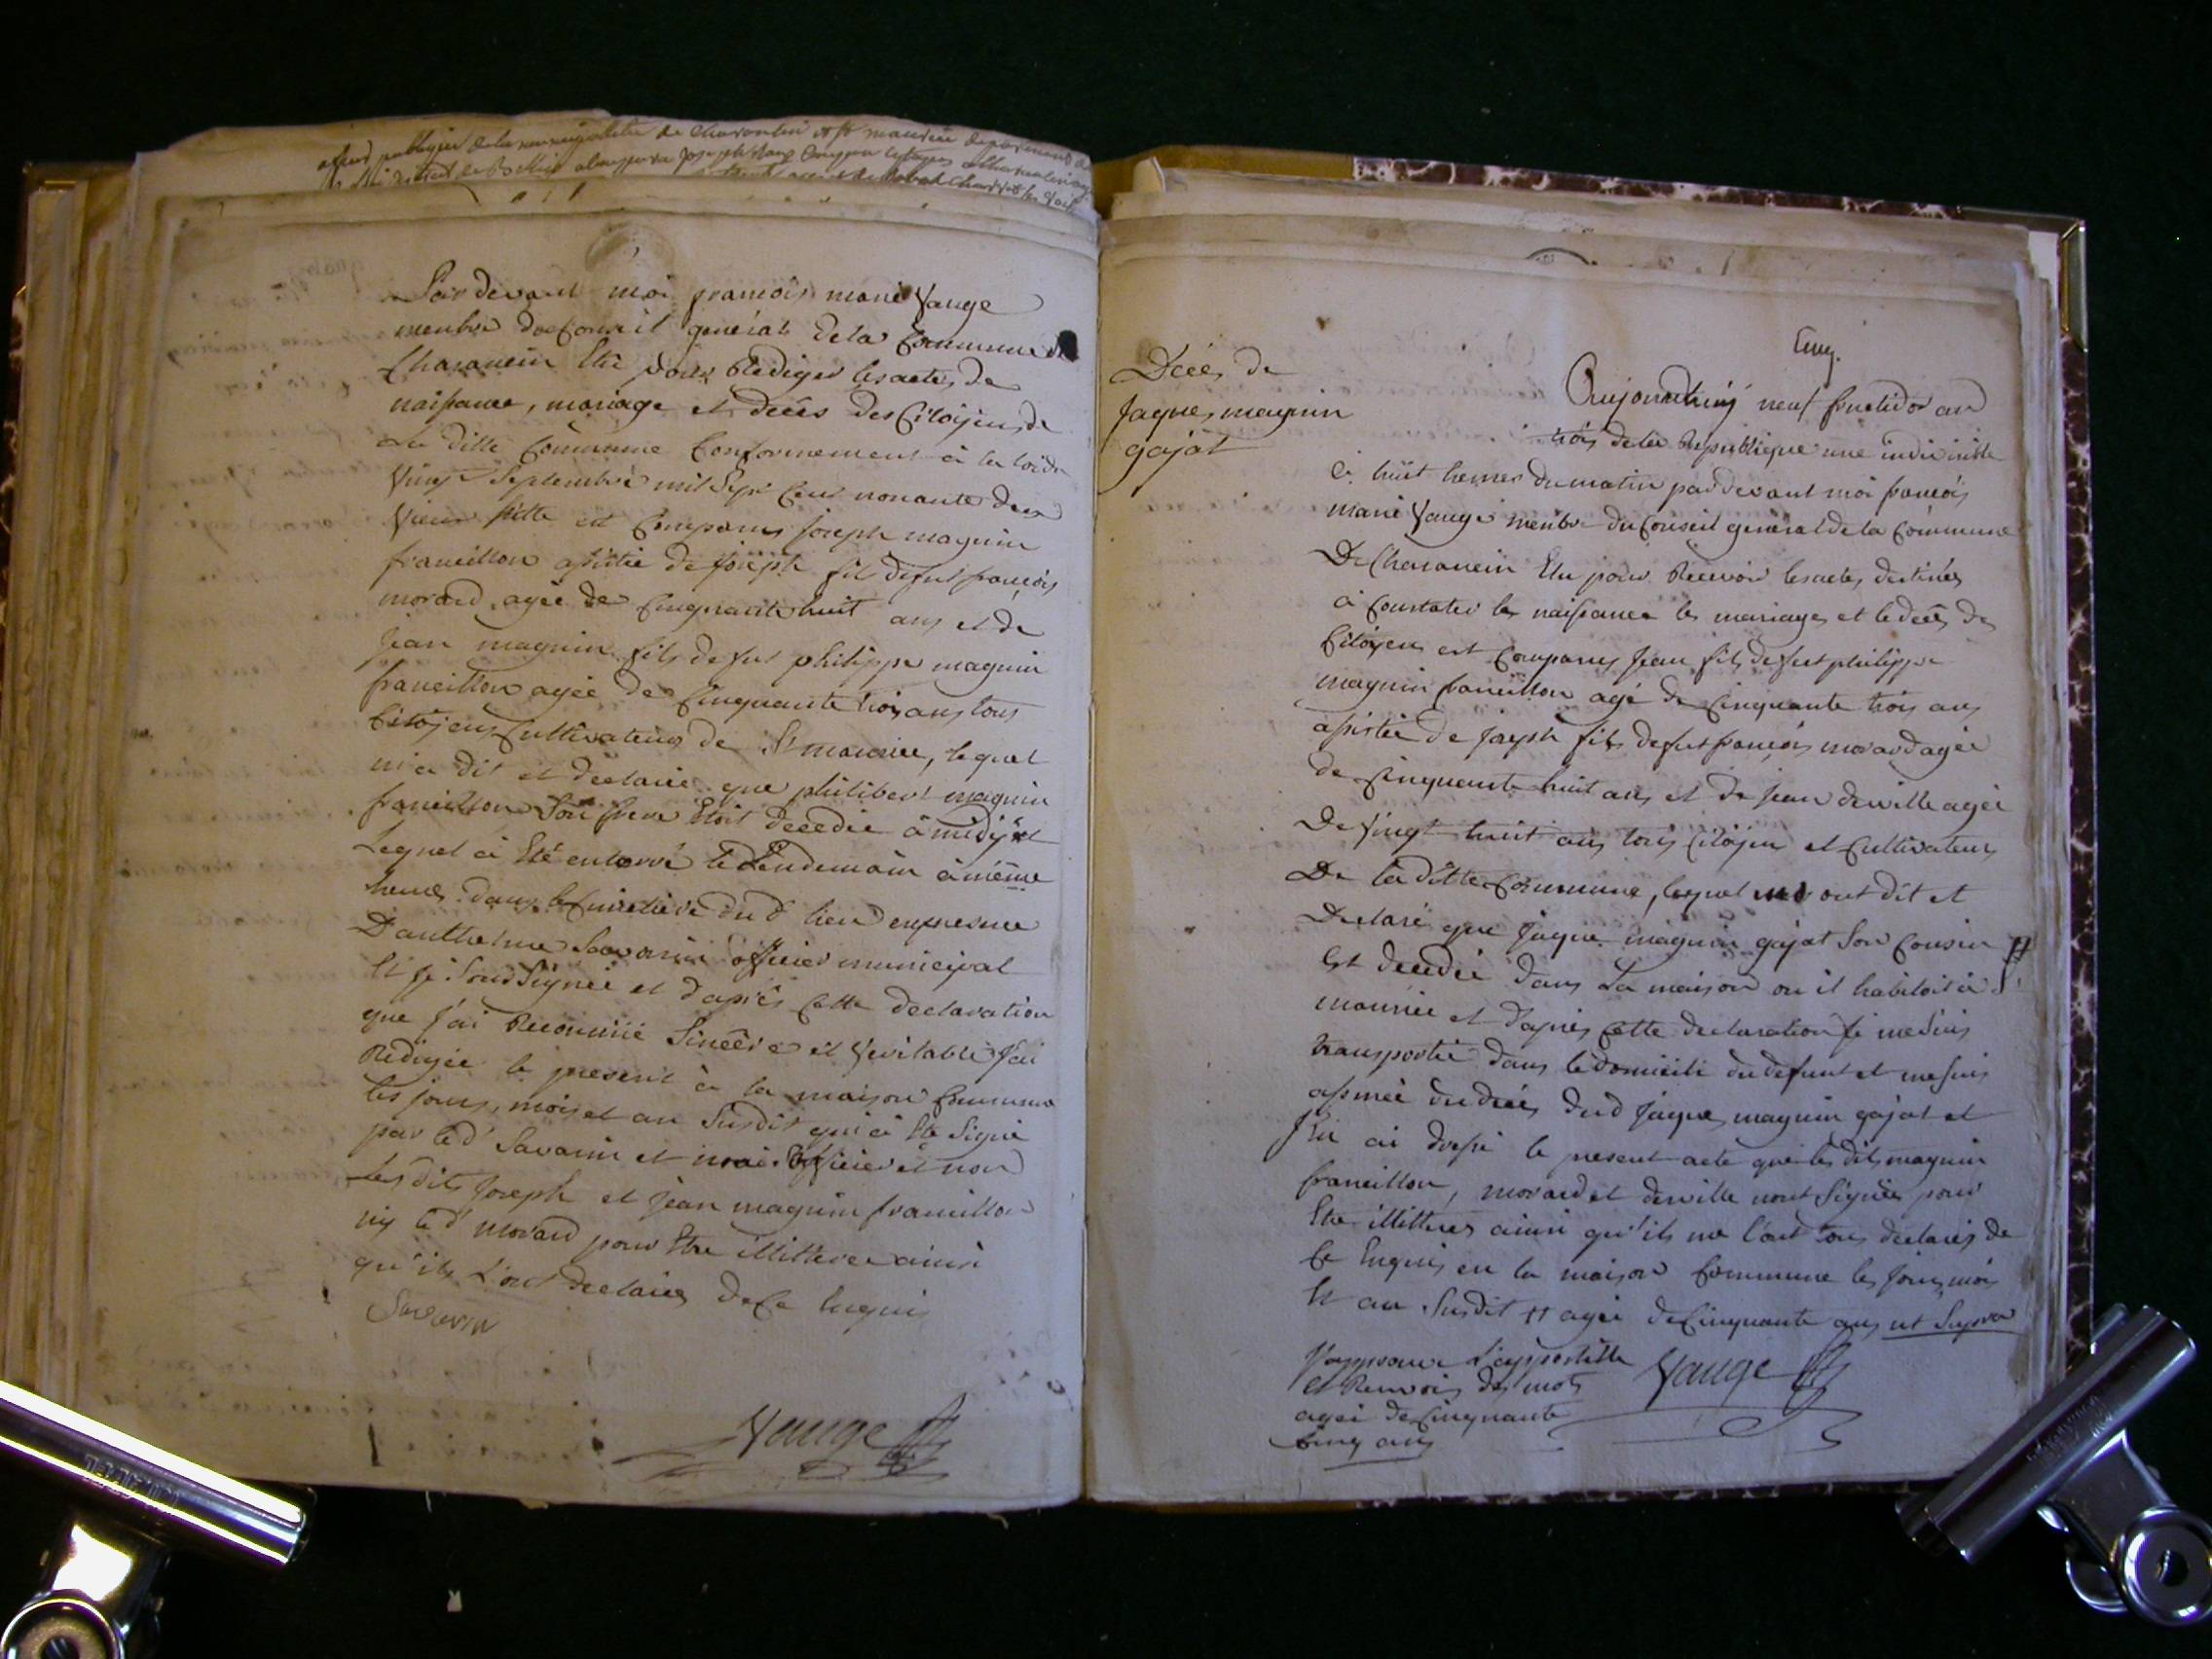 Par devant moi françois marie Vauge
membre du Conseil general de la Commune de
Charancin Elu pour Rediger les actes de
naissance, mariage et deces des Citoyens de
La ditte Commune Conformement à la loi de
Vingt Septembre mil Sept Cent nonante deux
Vieux stille est Comparus joseph magnin
francillon assistée de joseph fils de fut françois
morard, agée de Cinquante huit ans et de
jean magnin fils de fut philippe magnin
francillon agée de Cinquante trois ans tous
Citoyens Cultivateurs de St maurice, lequel
m'a dit et declaré que philibert magnin
francillon Son frere Etoit decedé à midÿ et
Lequel à Eté enterré le Lendemain à même
heure dans le Cimetiere du d' lieu en presence
D'anthelme Savarin officier municipal
Et je Sous Signée et d'après Cette declaration
que j'ai Reconnüe Sincère et Veritable j'ai
Redigée le present à la maison Commune
les jours, mois et an Susdit qui à Eté Signé
par le d' Savarin et moi officier et non
Les dits joseph et jean magnin francillon
ny le d' morard pour Etre illitteré ainsi
qu'ils L'ont declarés de Ce Enquis
Savarin
Vauge
Cinq.
Décès de
Jaques magnin
gajat
Aujourdhuÿ neuf fructidor an
trois de la Republique une indivisible
à huit heures du matin par devant moi françois
marie Vauge membre du Conseil general de la Commune
De Charancin Elu pour Recevoir les actes destinés
à Constater les naissances les mariages et le decès des
Citoyens est Comparus jean fils de fut philippe
magnin francillon agé de Cinquante trois ans
assistée de joseph fils de fut françois morard agée
de Cinquante huit ans et de jean derville agée
De Vingt huit ans tous Citoyens et Cultivateurs
De la ditte Commune, lequel ont dit et
Declaré que jaque magnin gajat Son Cousin #
Est decedée dans La maison ou il habitoit à St
maurice et d'apres Cette declaration je me suis
transportée dans le domicile du defunt et me suis
assurée du decès du d jaque magnin gajat et
j'En ai dressé le present acte que les dits magnin
francillon, morard et derville n'ont Signés pour
Etre illitterés ainsi qu'ils me l'ont tous declarés de
Ce Enquis en la maison Commune les jours, mois
Et an Susdit # agée de Cinquante ans ut Supra
J'approuve L'appostille
et Renvois des mots
agée de Cinquante
Cinq ans
Vauge